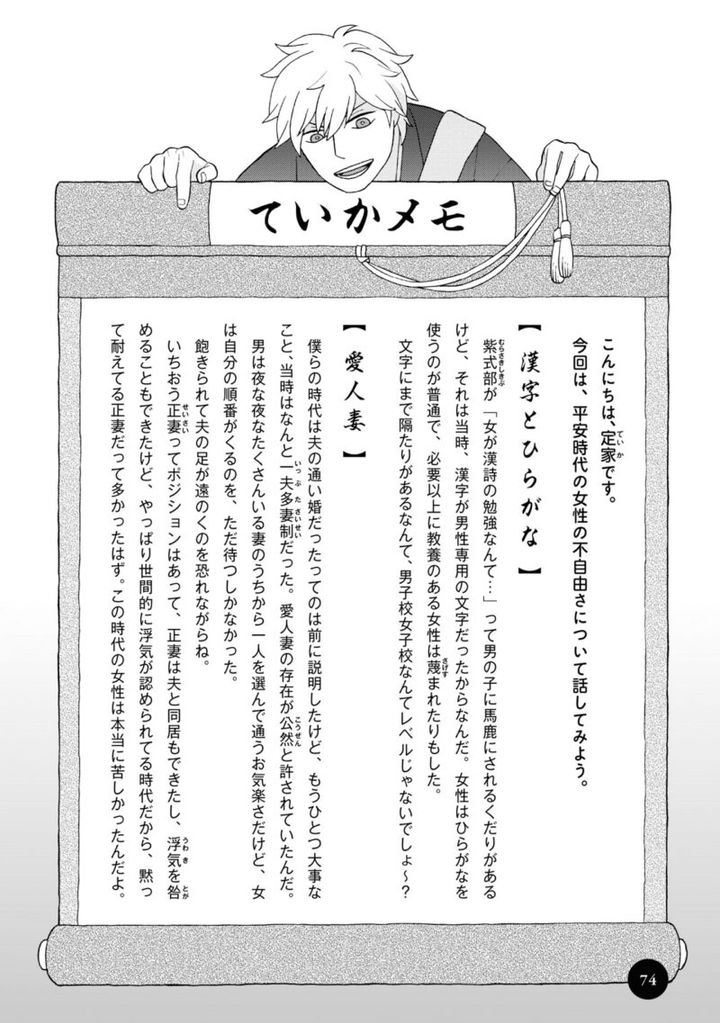 ていかメモ
こんにちは、定家です。
今回は、平安時代の女性の不自由さについて話してみよう。
【漢字とひらがな】
紫式部が「女が漢詩の勉強なんて…」って男の子に馬鹿にされるくだりがある
けど、それは当時、漢字が男性専用の文字だったからなんだ。女性はひらがなを
使うのが普通で、必要以上に教養のある女性は蔑まれたりもした。
文字にまで隔たりがあるなんて、男子校女子校なんてレベルじゃないでしょ〜？
【愛人妻】
僕らの時代は夫の通い婚だったってのは前に説明したけど、もうひとつ大事な
こと、当時はなんと一夫多妻制だった。愛人妻の存在が公然と許されていたんだ。
男は夜な夜なたくさんいる妻のうちから一人を選んで通うお気楽さだけど、女
は自分の順番がくるのを、ただ待つしかなかった。
飽きられて夫の足が遠のくのを恐れながらね。
いちおう正妻ってポジションはあって、正妻は夫と同居もできたし、浮気を咎
めることもできたけど、やっぱり世間的に浮気が認められてる時代だから、黙っ
て耐えてる正妻だって多かったはず。この時代の女性は本当に苦しかったんだよ。
74